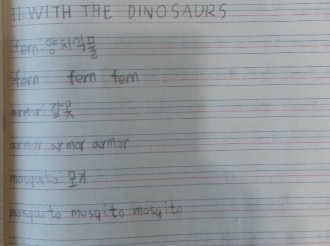 WITH THE DINOSAURS
fern: 양치식물
fern fern fern
armor: 갑옷
armor armor armor
mosquito: 모기
mosquito mosqito mosqito